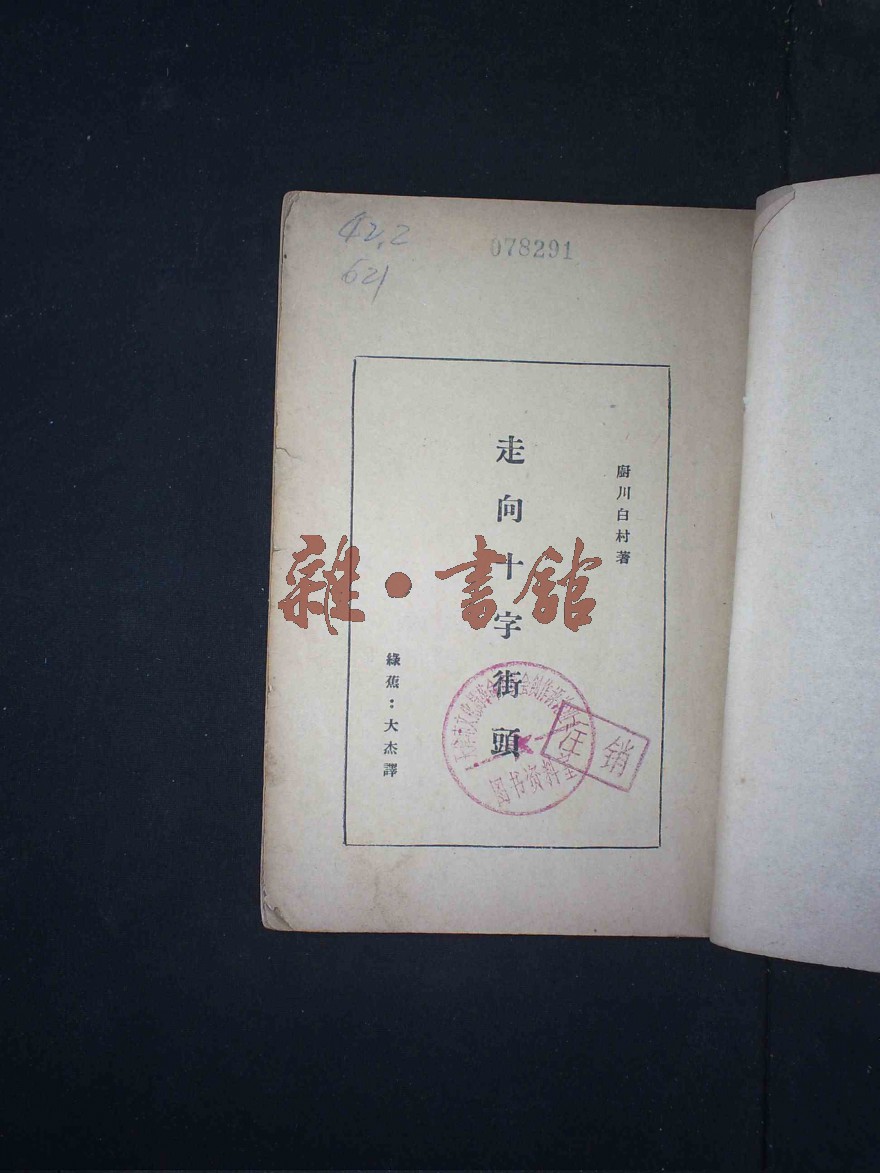 42.2
621
078291
廚川白村著
走向十字街頭
綠蕉：大杰譯
雜·書館
图书资料室
注销